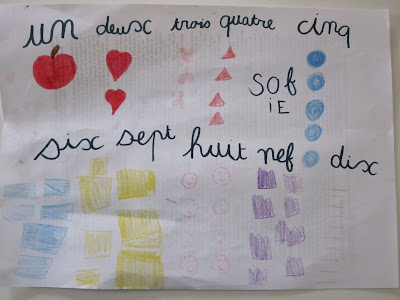 un deux trois quatre cinq
SOf
iE
six sept huit nef dix